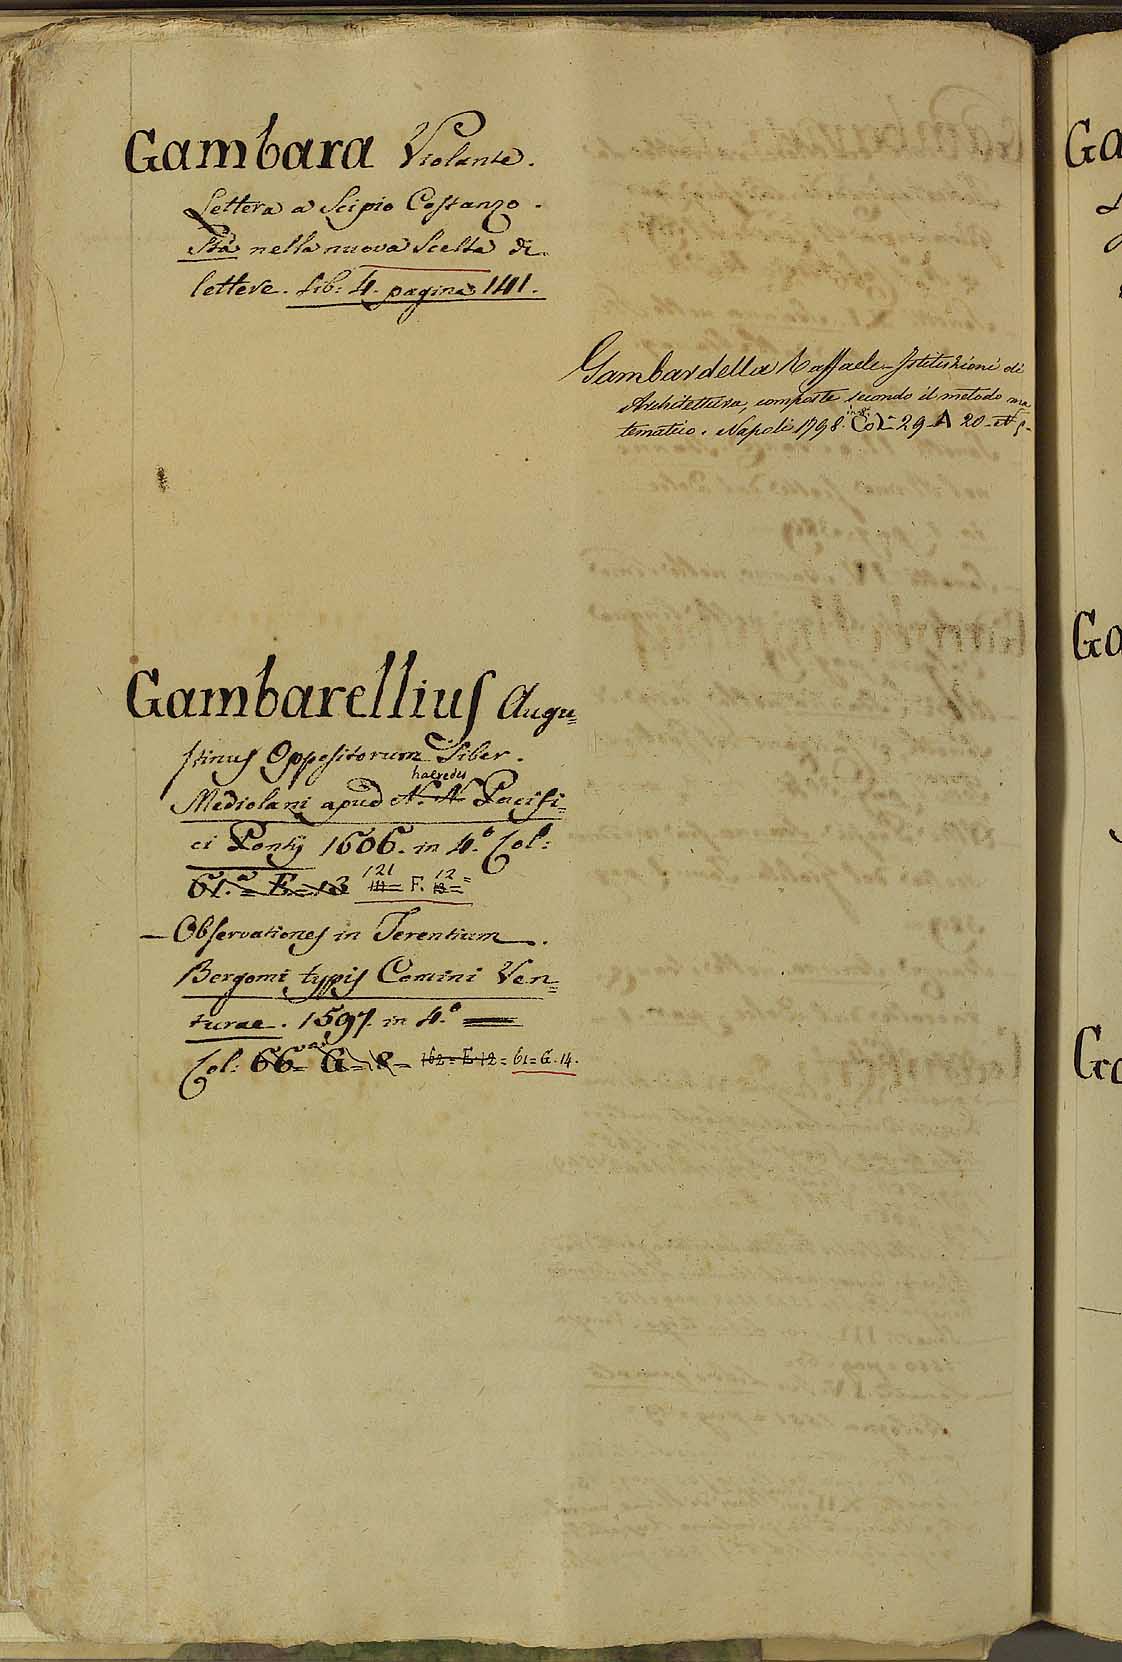 Gambara Violante.
Lettera a Scipio Costanzo.
Stà nella nuova Scelta di
lettere. Lib: 4. pagina 141.
Gambardella Raffaele = Istituzioni di
Architettura, composte secondo il metodo ma
tematico. Napoli 1798. Col= 29=A 20=
Gambarellius Augu=
stinus Oppositorum Liber.
haeredes
Mediolani apud N. N. Pacifi=
ci Pontij 1606. in 4.° Col:
61.a = E = 13 121 = F. 12 =
— Observationes in Terentium.
Bergomi typis Comini Ven=
turae. 1597. in 4.°
Col: 66 = G = 8 = 162 = E. 12 = 61 = G. 14.
Ga
Ga
Ga